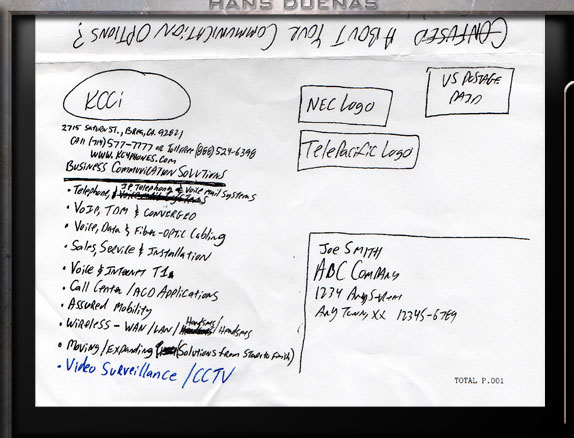 HANS DUENAS
CONFUSED ABOUT YOUR COMMUNICATION OPTIONS?
KCCi
2715 SATURN ST., BREA, CA 92821
CALL (714) 577-7777 or Toll Free (866) 524-6398
WWW.KC4PHONES.COM
BUSINESS COMMUNICATION SOLUTIONS
• Telephone, IP Telephony & Voice Mail Systems
• VoIP, TDM & CONVERGED
• Voice, Data & Fiber-Optic Cabling
• Sales, Service & Installation
• Voice & INTERNET T1
• Call Center / ACD Applications
• Assured Mobility
• WIRELESS - WAN/LAN/ /Headsets
• Moving/Expanding (Solutions from Start to Finish)
• Video Surveillance / CCTV
NEC LOGO
TelePacific LOGO
US POSTAGE
PAID
JOE SMITH
ABC COMPANY
1234 Any System
ANY TOWN, XX 12345-6789
TOTAL P.001